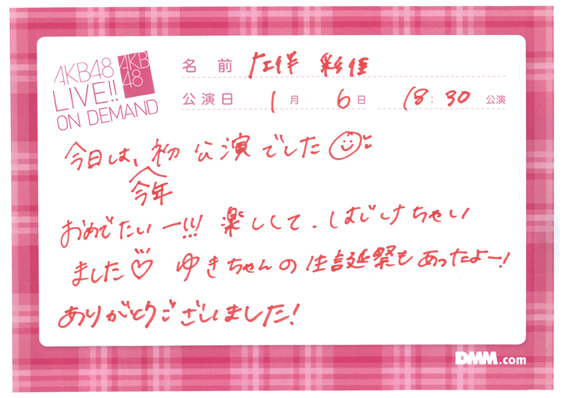 AKB48
LIVE!!
ON DEMAND
AKB
48
名前
公演日 1月 6日 18:30 公演
今日は、初 公演でした
今年
おめでたいー!!! 楽しくて、はじけちゃい
ました♡ ゆきちゃんの生誕祭もあったよー!
ありがとうございました!
DMM.com